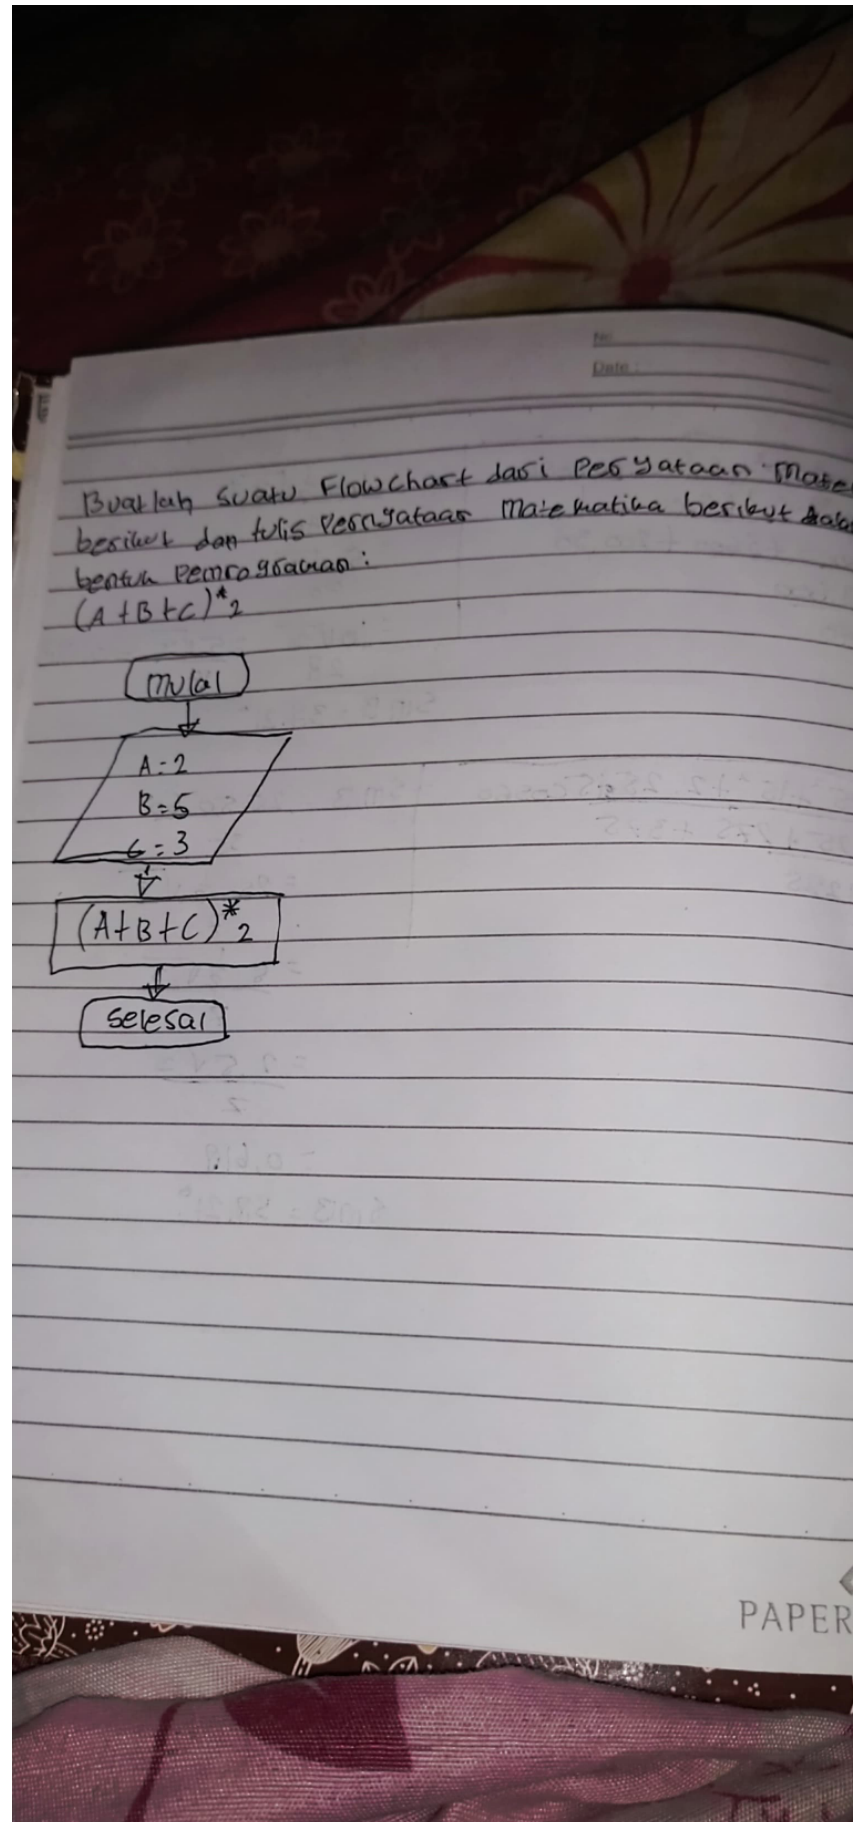 No
Date :
Buatlah suatu Flowchart dari Peryataan Mate
berikut dan tulis Pernyataan Matematika berikut dala
bentuk Pemrograman :
(A+B+C)*2
Mulai
A=2
B=5
C=3
(A+B+C)*2
Selesai
PAPER